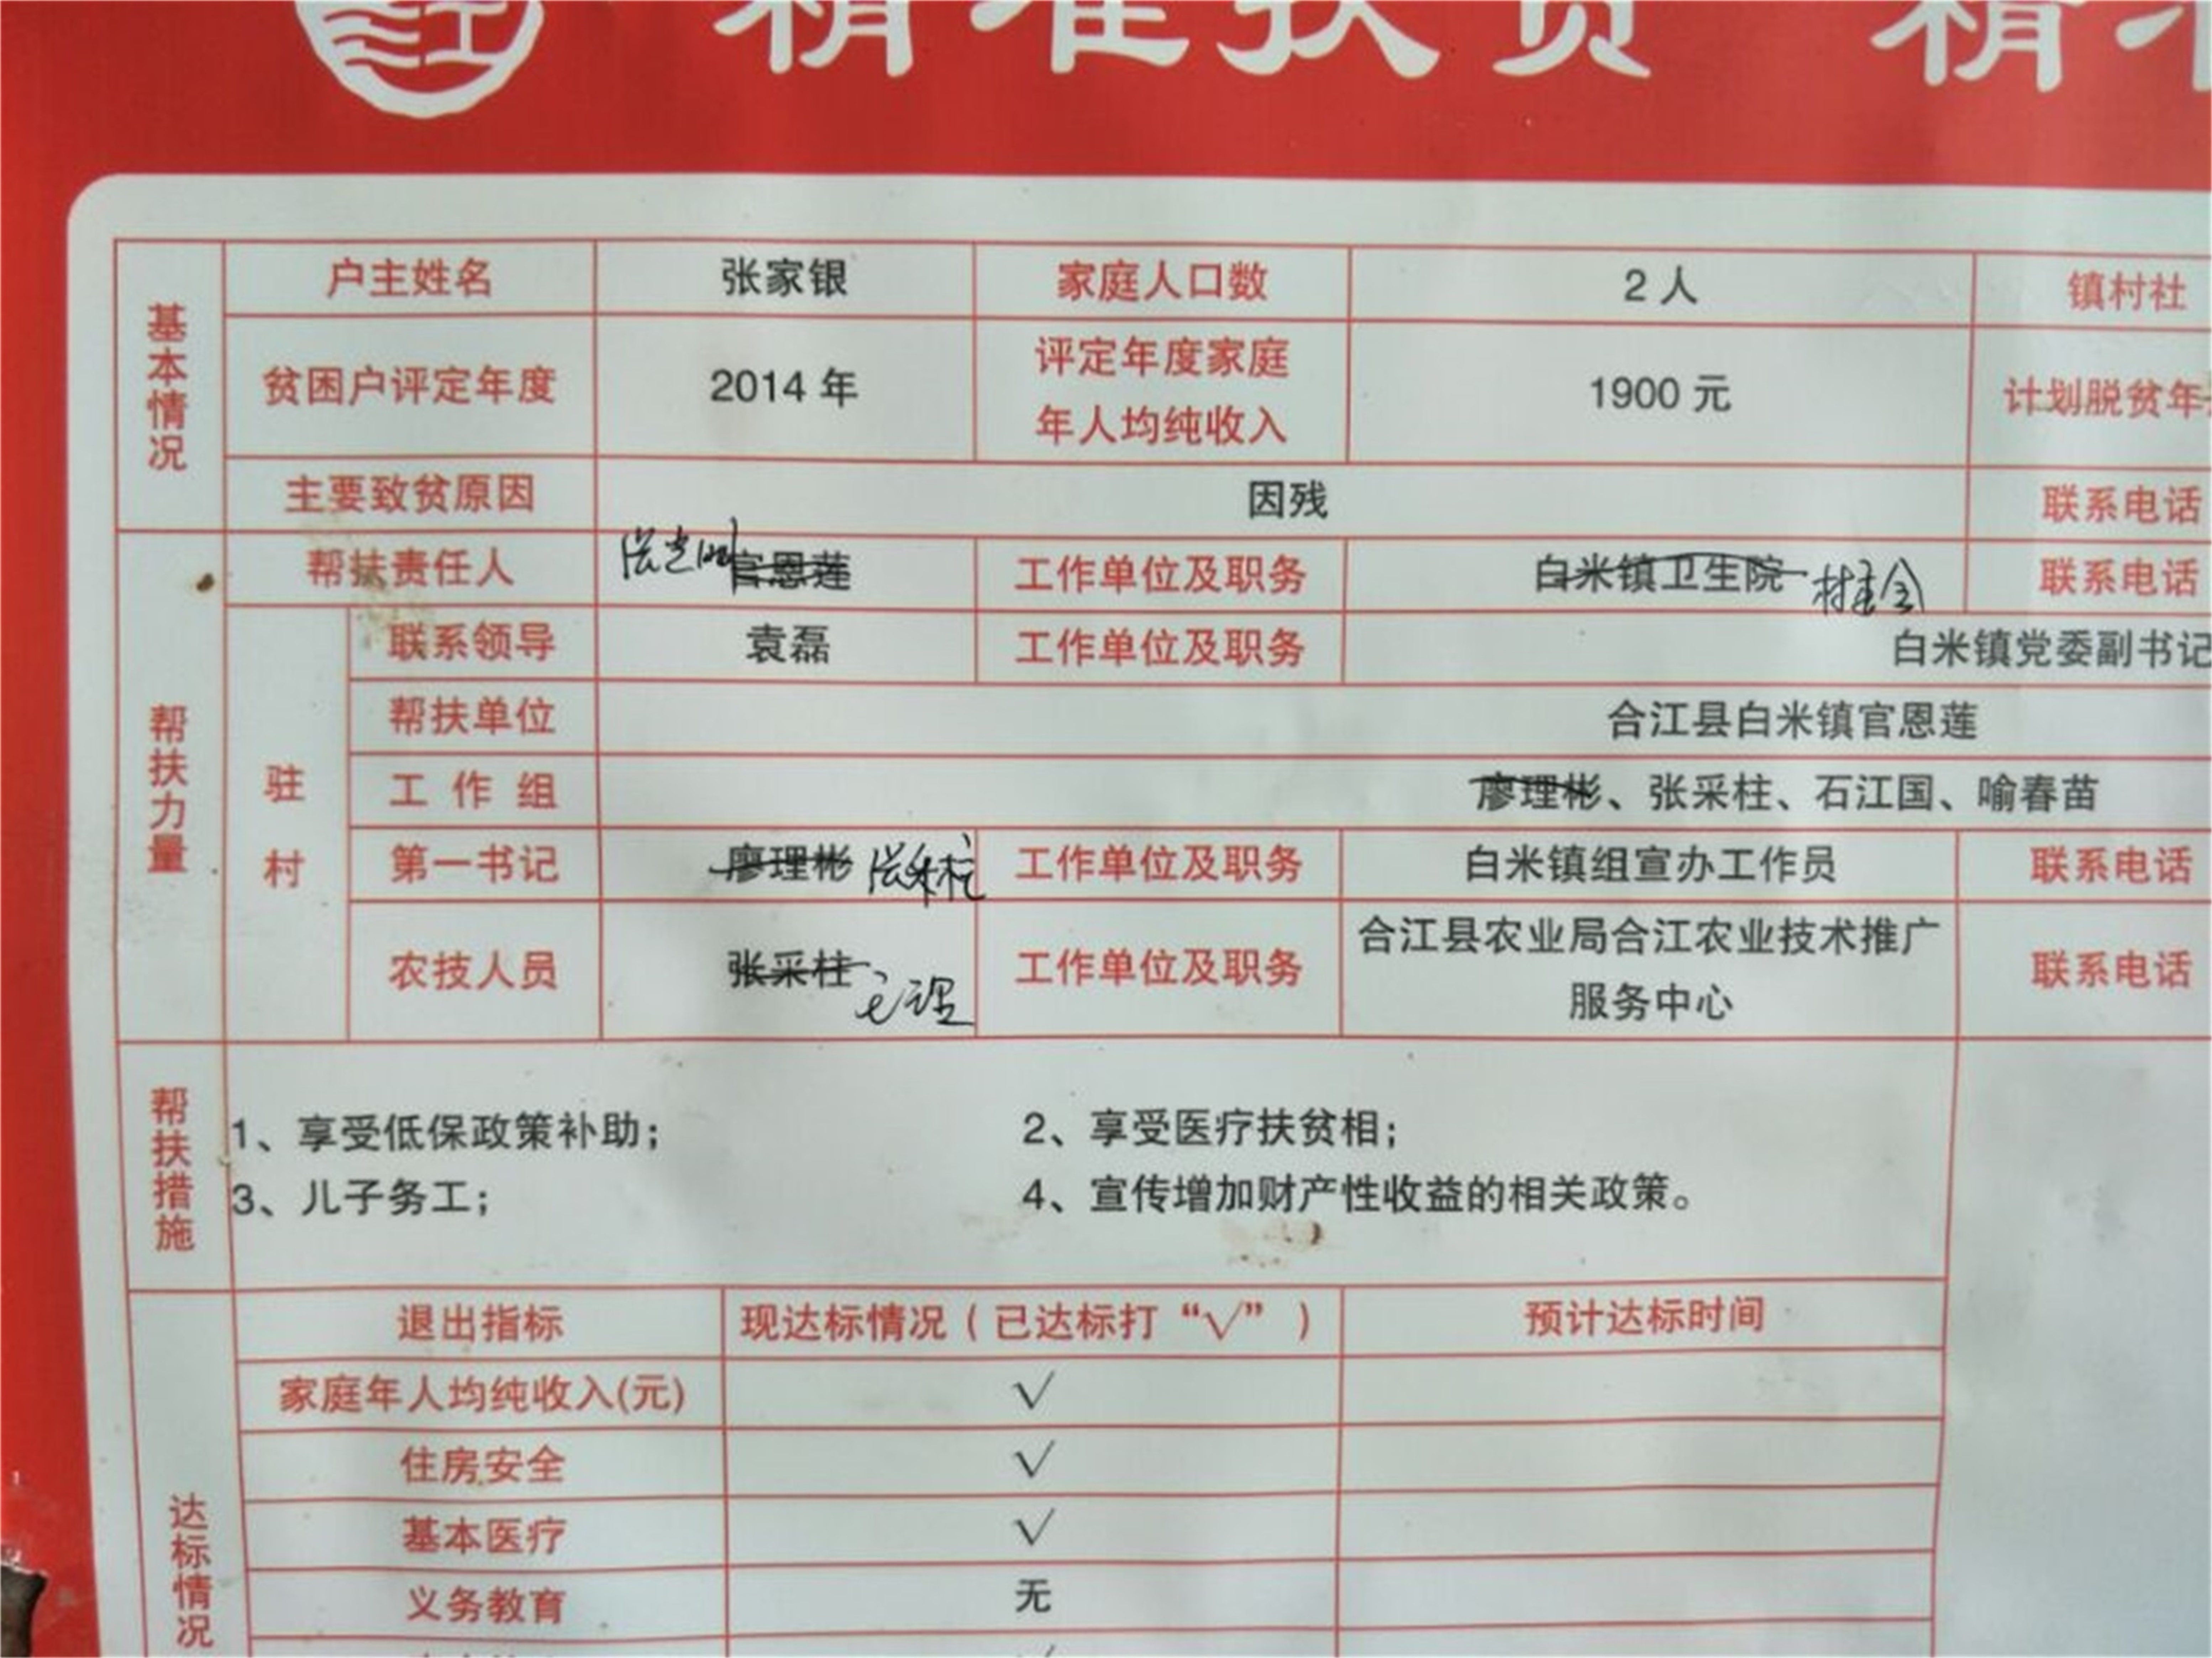 精准扶贫 精准
基本情况
户主姓名 张家银 家庭人口数 2 人 镇村社
贫困户评定年度 2014 年 评定年度家庭 1900 元 计划脱贫年
年人均纯收入
主要致贫原因 因残 联系电话
帮扶力量
帮扶责任人 官恩莲 工作单位及职务 白米镇卫生院 联系电话
驻村
联系领导 袁磊 工作单位及职务 白米镇党委副书记
帮扶单位 合江县白米镇官恩莲
工作组 廖理彬、张采柱、石江国、喻春苗
第一书记 廖理彬 张采柱 工作单位及职务 白米镇组宣办工作员 联系电话
农技人员 张采柱 工作单位及职务 合江县农业局合江农业技术推广 联系电话
服务中心
帮扶措施
1、享受低保政策补助； 2、享受医疗扶贫相；
3、儿子务工； 4、宣传增加财产性收益的相关政策。
达标情况
退出指标 现达标情况（已达标打“√”） 预计达标时间
家庭年人均纯收入(元) √
住房安全 √
基本医疗 √
义务教育 无